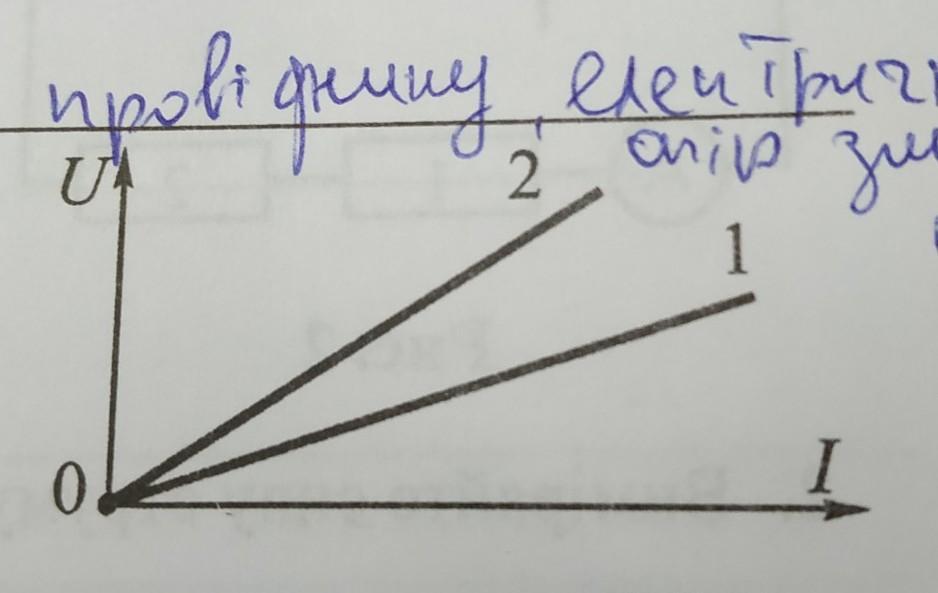 провіднику, електричн
опір зм
U
2
1
0
I